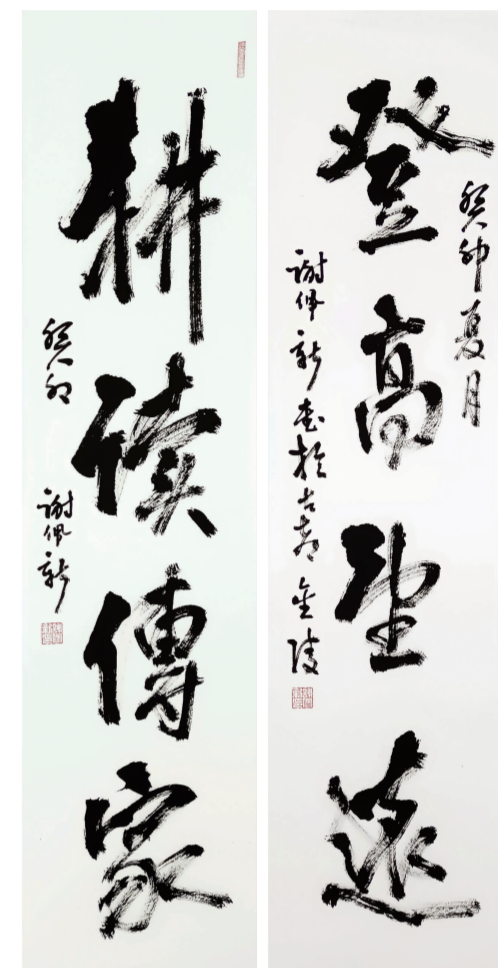 登高望遠
癸卯夏月
谢佩新書於古都金陵
耕读傳家
癸卯
谢佩新